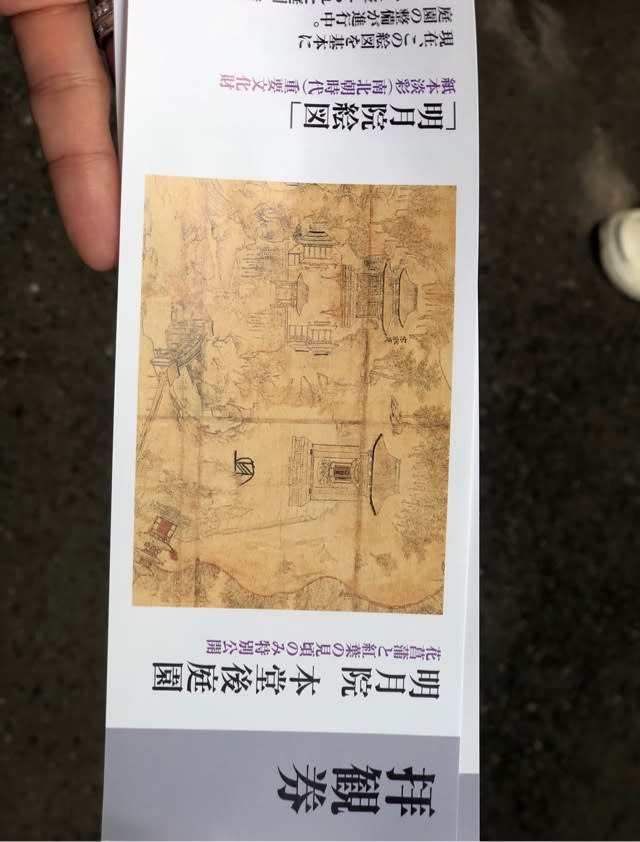 拝観券
明月院 本堂後庭園
花菖蒲と紅葉の見頃のみ特別公開
「明月院絵図」
紙本淡彩(南北朝時代)重要文化財
現在、この絵図を基本に
庭園の整備が進行中。